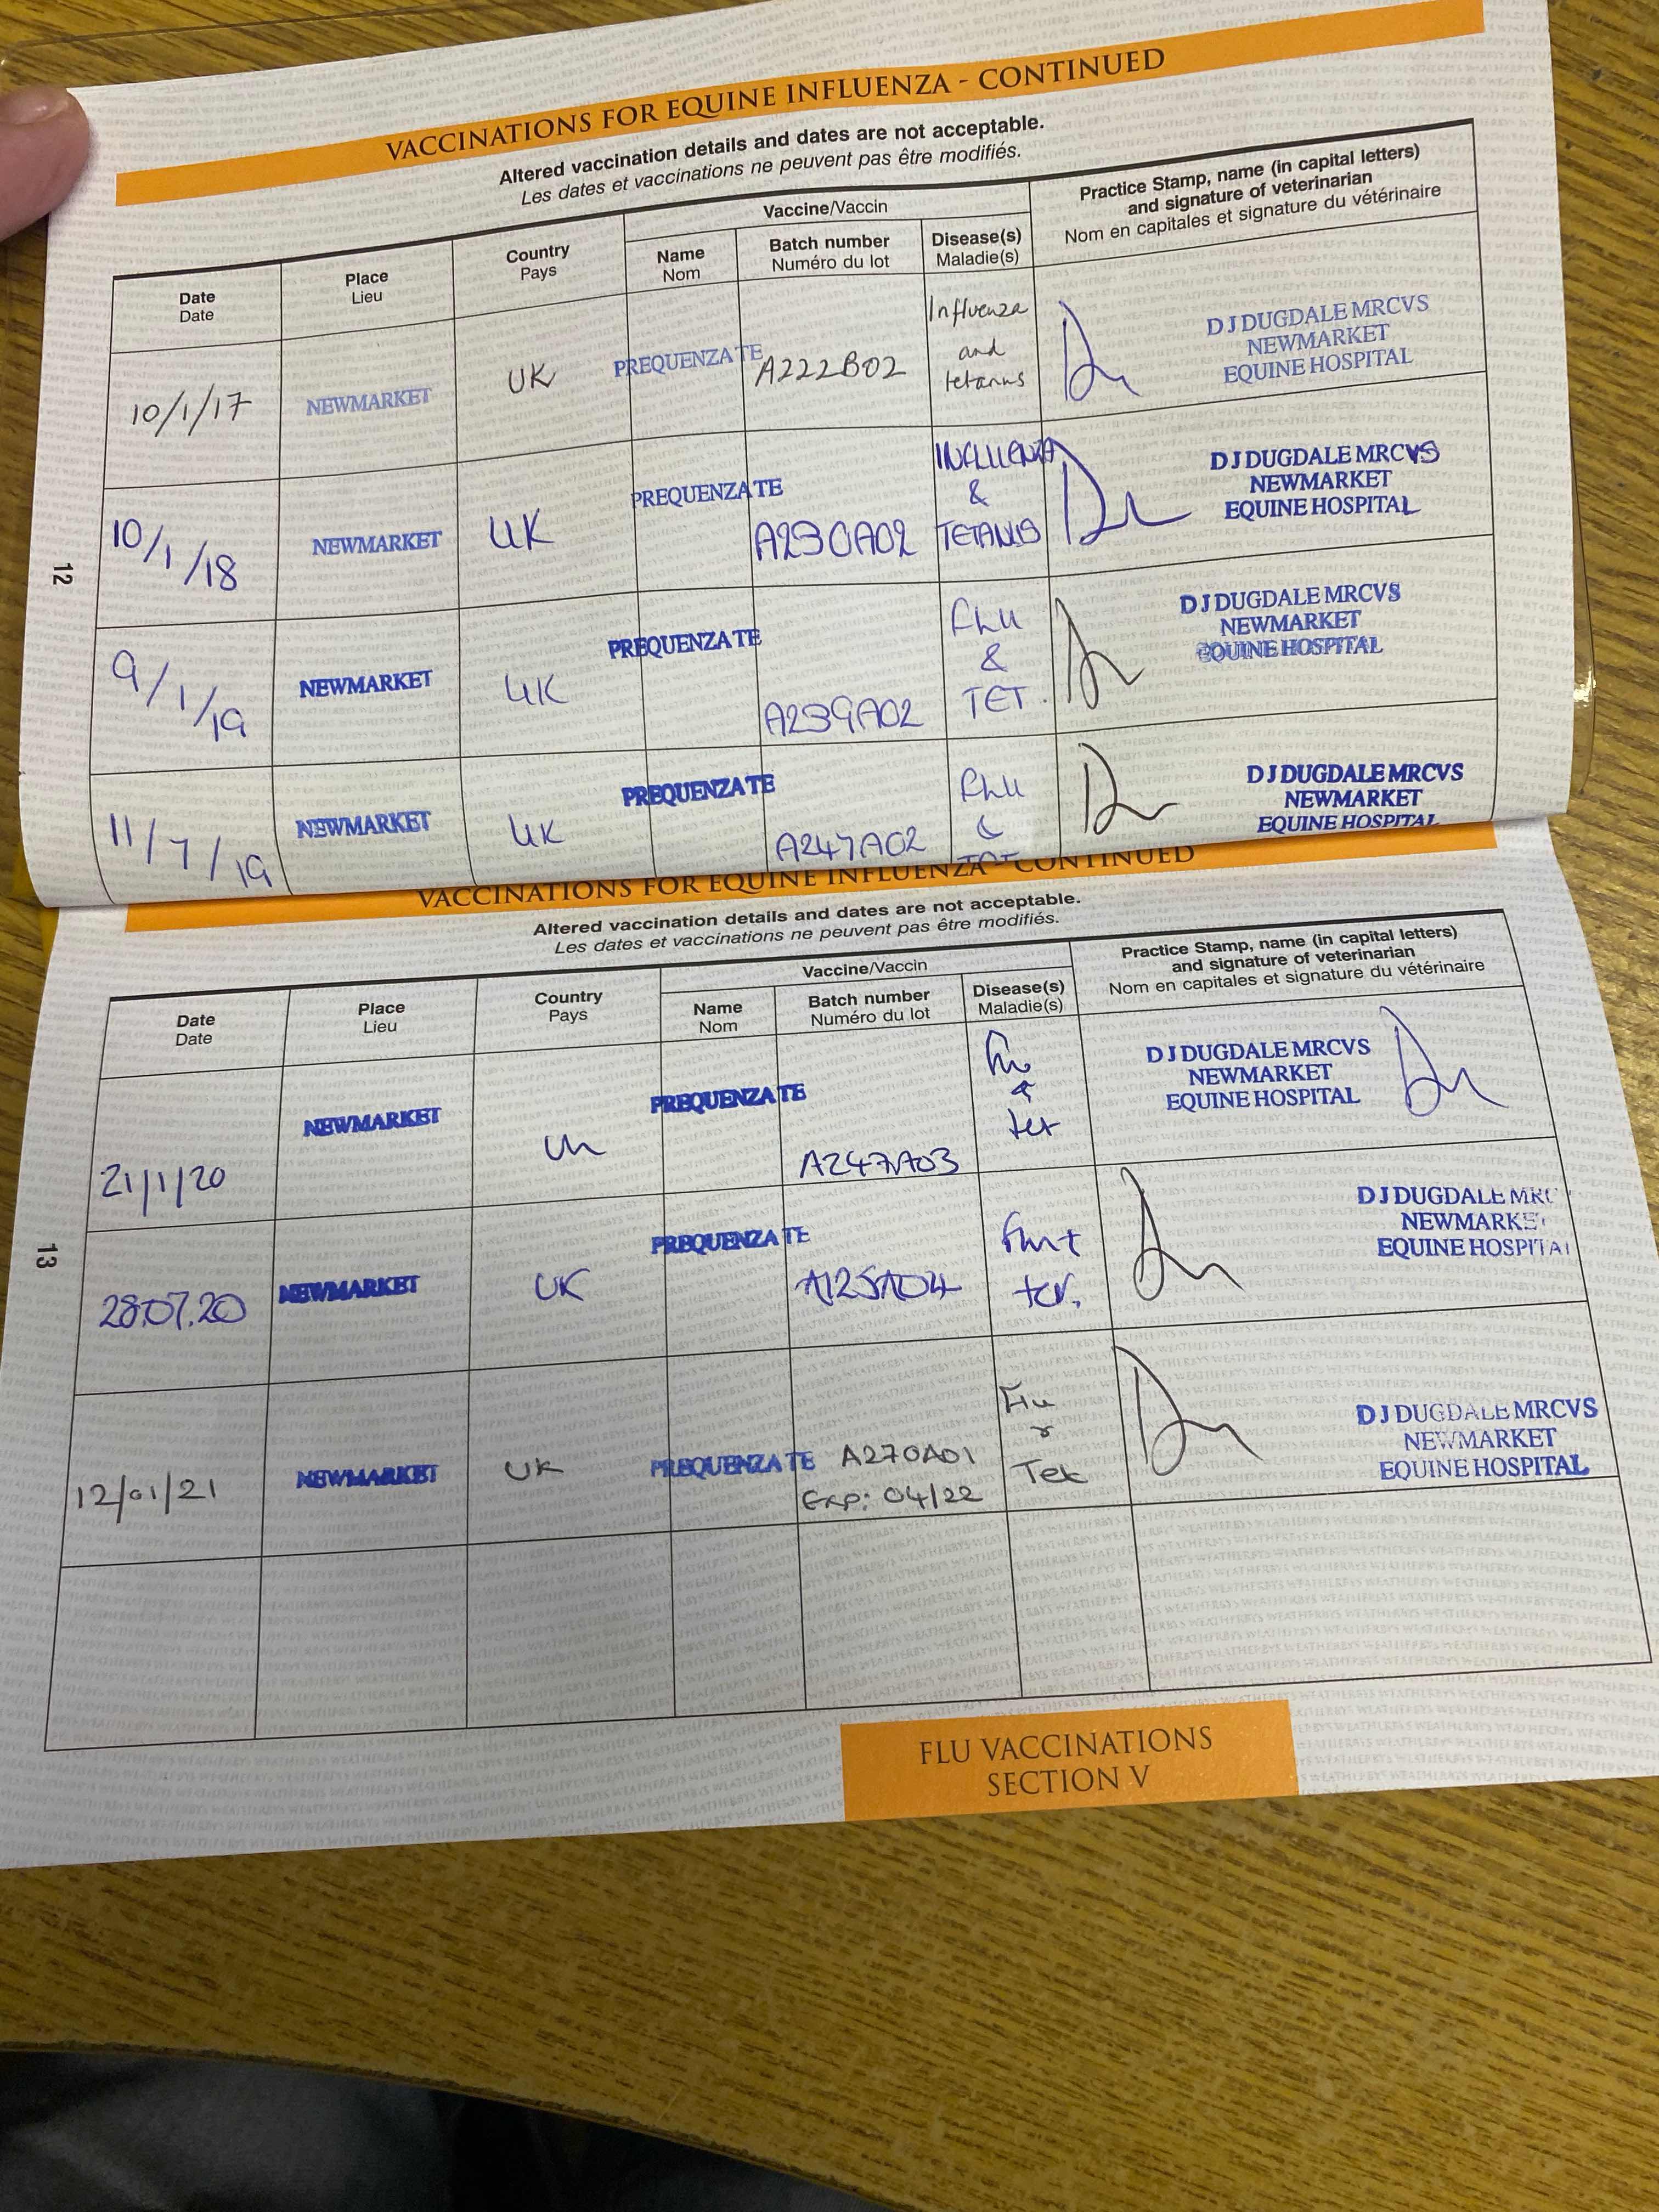 VACCINATIONS FOR EQUINE INFLUENZA - CONTINUED
Altered vaccination details and dates are not acceptable.
Les dates et vaccinations ne peuvent pas être modifiés.
Date
Date
Place
Lieu
Country
Pays
Vaccine/Vaccin
Name
Nom
Batch number
Numéro du lot
Disease(s)
Maladie(s)
Practice Stamp, name (in capital letters)
and signature of veterinarian
Nom en capitales et signature du vétérinaire
10/1/17
NEWMARKET
UK
PREQUENZA TE
A222B02
Influenza
and
tetanus
D J DUGDALE MRCVS
NEWMARKET
EQUINE HOSPITAL
10/1/18
NEWMARKET
UK
PREQUENZA TE
A230A02
INFLUENZA
&
TETANUS
D J DUGDALE MRCVS
NEWMARKET
EQUINE HOSPITAL
9/1/19
NEWMARKET
UK
PREQUENZA TE
A239A02
FLU
&
TET.
D J DUGDALE MRCVS
NEWMARKET
EQUINE HOSPITAL
11/7/19
NEWMARKET
UK
PREQUENZA TE
A247A02
FLU
D J DUGDALE MRCVS
NEWMARKET
EQUINE HOSPITAL
12
VACCINATIONS FOR EQUINE INFLUENZA - CONTINUED
Altered vaccination details and dates are not acceptable.
Les dates et vaccinations ne peuvent pas être modifiés.
Date
Date
Place
Lieu
Country
Pays
Vaccine/Vaccin
Name
Nom
Batch number
Numéro du lot
Disease(s)
Maladie(s)
Practice Stamp, name (in capital letters)
and signature of veterinarian
Nom en capitales et signature du vétérinaire
21/1/20
NEWMARKET
UK
PREQUENZA TE
A247A03
Flu
&
tet
D J DUGDALE MRCVS
NEWMARKET
EQUINE HOSPITAL
28.07.20
NEWMARKET
UK
PREQUENZA TE
Flu +
tet.
D J DUGDALE MRC
NEWMARKE
EQUINE HOSPITAL
12/01/21
NEWMARKET
UK
PREQUENZA TE
A270A01
Exp: 04/22
Flu
Tet
D J DUGDALE MRCVS
NEWMARKET
EQUINE HOSPITAL
13
FLU VACCINATIONS
SECTION V